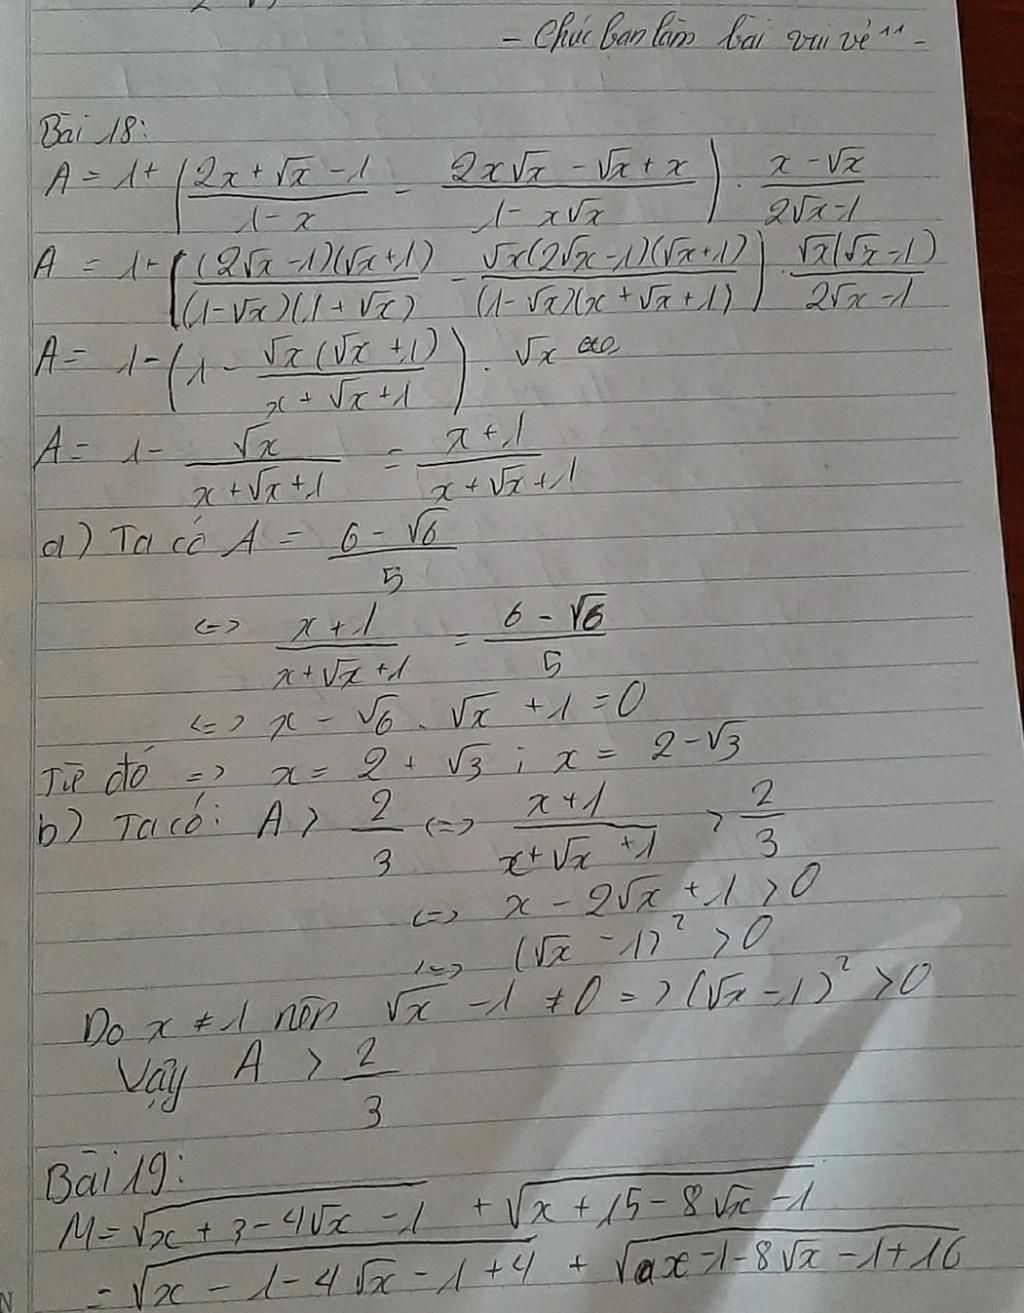 - Chúc bạn làm bài vui vẻ ^^ -
Bài 18:
A = 1 + ((2x + √x - 1)/(1 - x) - (2x√x - √x + x)/(1 - x√x)) . (x - √x)/(2√x - 1)
A = 1 + [((2√x - 1)(√x + 1))/((1 - √x)(1 + √x)) - (√x(2√x - 1)(√x + 1))/((1 - √x)(x + √x + 1))] . (√x(√x - 1))/(2√x - 1)
A = 1 - (1 - (√x(√x + 1))/(x + √x + 1)) . √x
A = 1 - √x/(x + √x + 1) = (x + 1)/(x + √x + 1)
a) Ta có A = (6 - √6)/5
<=> (x + 1)/(x + √x + 1) = (6 - √6)/5
<=> x - √6 . √x + 1 = 0
Từ đó => x = 2 + √3 ; x = 2 - √3
b) Ta có: A > 2/3 <=> (x + 1)/(x + √x + 1) > 2/3
<=> x - 2√x + 1 > 0
<=> (√x - 1)² > 0
Do x ≠ 1 nên √x - 1 ≠ 0 => (√x - 1)² > 0
Vậy A > 2/3
Bài 19:
M = √(x + 3 - 4√x - 1) + √(x + 15 - 8√x - 1)
= √(x - 1 - 4√x - 1 + 4) + √(x - 1 - 8√x - 1 + 16)